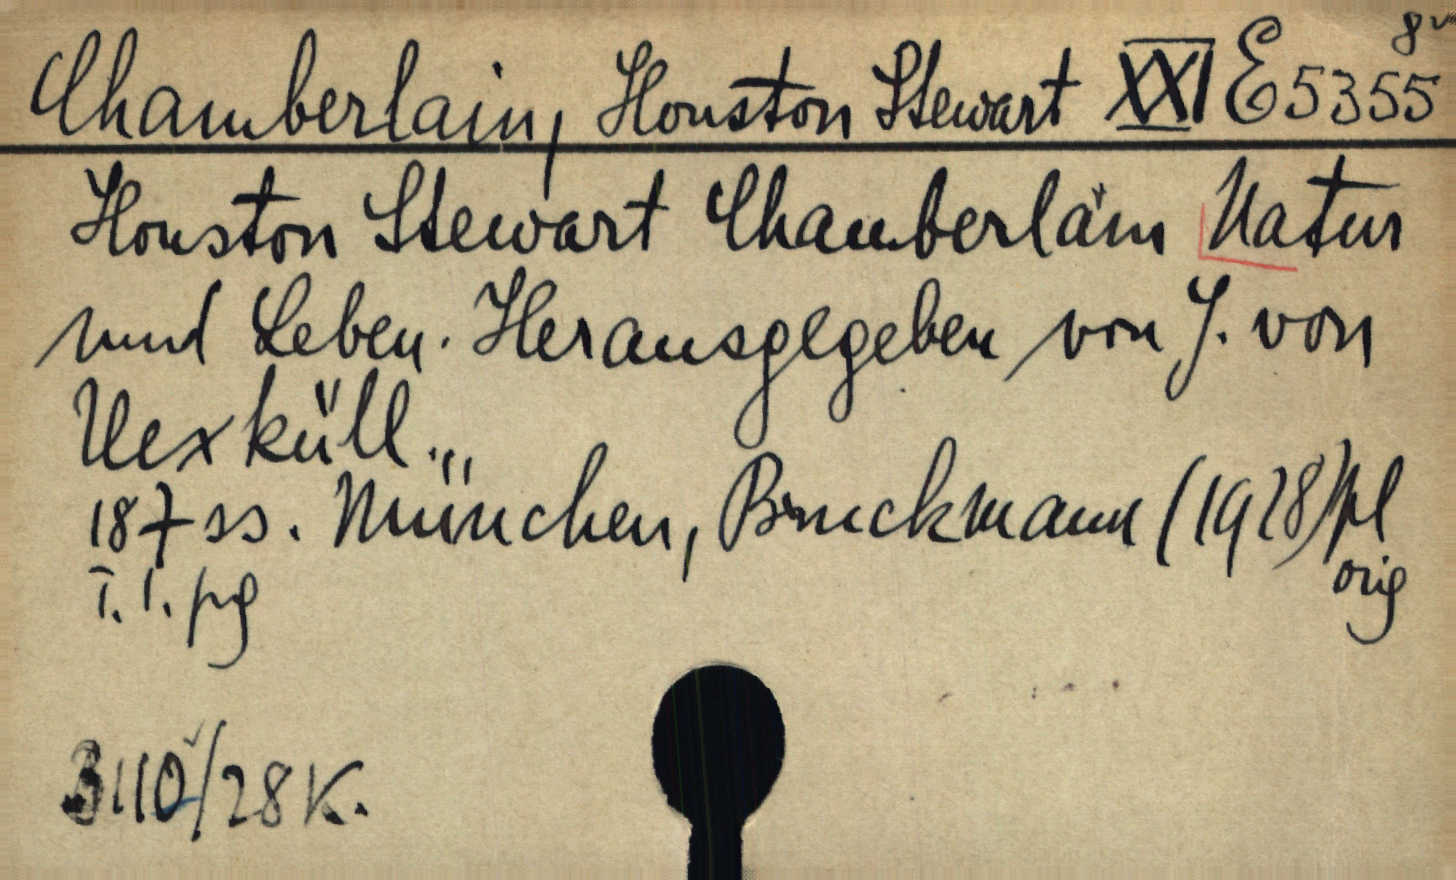 Chamberlain, Houston Stewart XXI E 5355 8°
Houston Stewart Chamberlain Natur
und Leben. Herausgegeben von J. von
Uexküll...
187 ss. München, Bruckmann (1928) pl
orig
T. l. pg
3110/28 K.